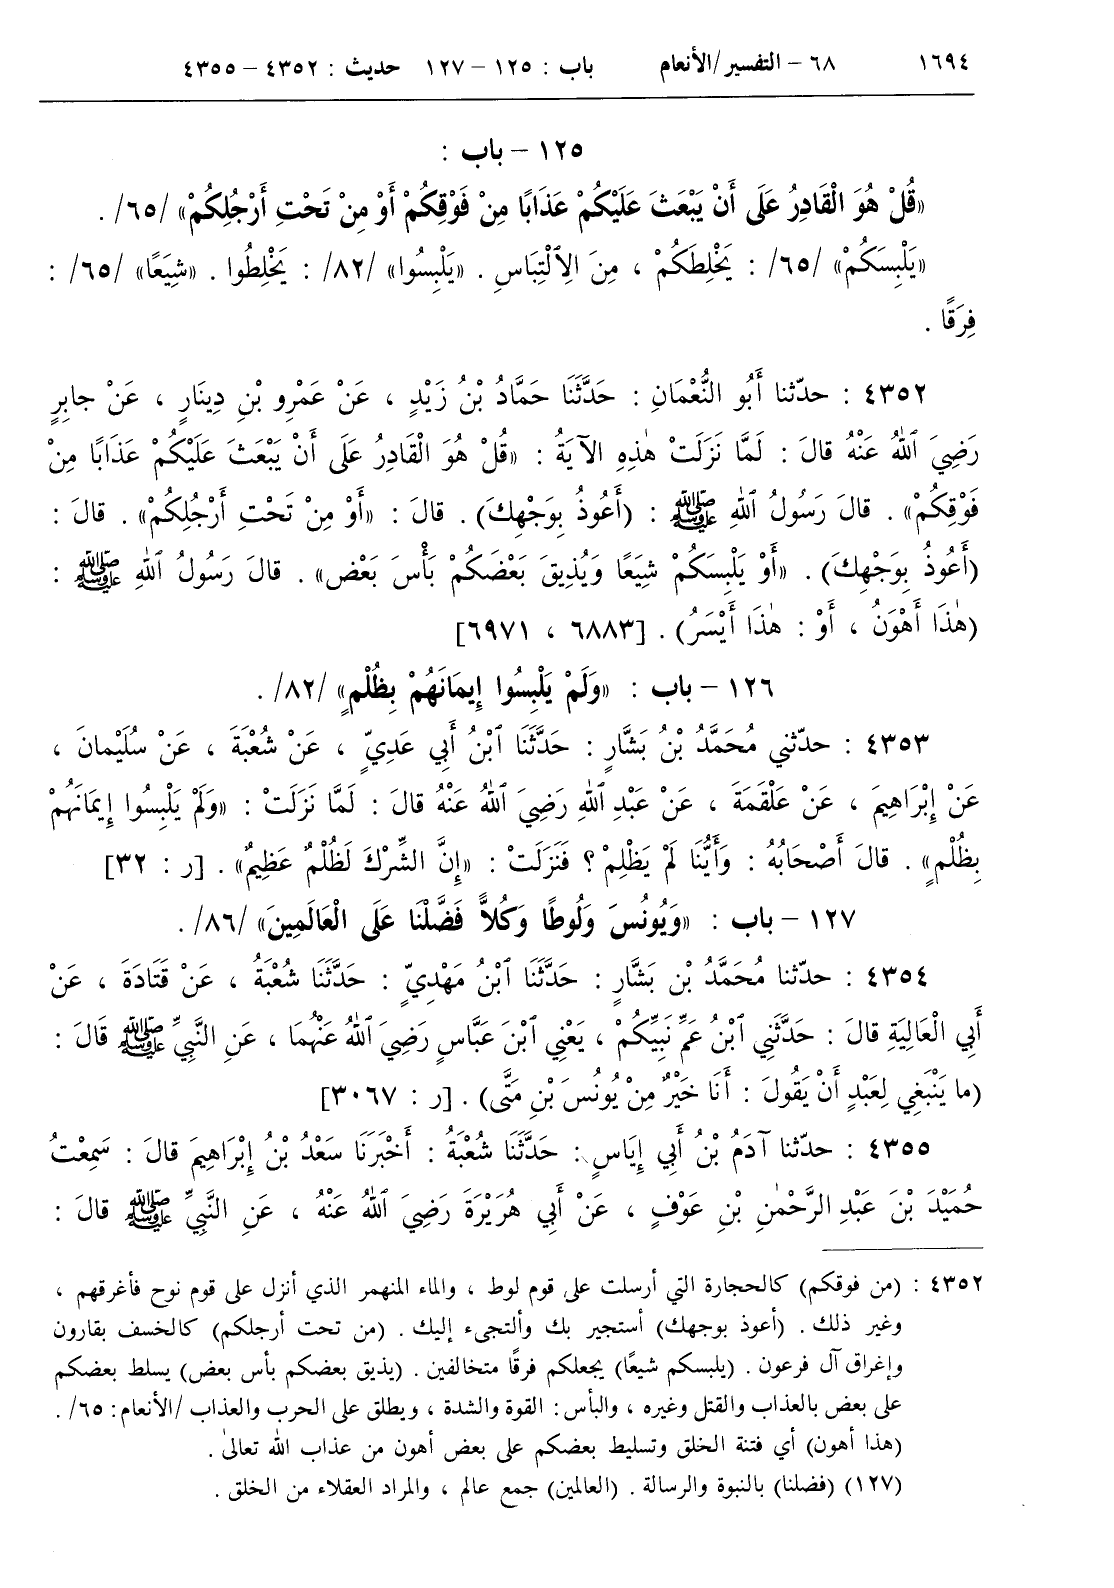 ١٦٩٤ ٦٨ – التفسير/الأنعام باب : ١٢٥ – ١٢٧ حديث : ٤٣٥٢ – ٤٣٥٥
١٢٥ – باب :
«قُلْ هُوَ الْقَادِرُ عَلَى أَنْ يَبْعَثَ عَلَيْكُمْ عَذَابًا مِنْ فَوْقِكُمْ أَوْ مِنْ تَحْتِ أَرْجُلِكُمْ» /٦٥/ .
«يَلْبِسَكُمْ» /٦٥/ : يَخْلِطَكُمْ ، مِنَ الِٱلْتِبَاسِ . «يَلْبِسُوا» /٨٢/ : يَخْلِطُوا . «شِيَعًا» /٦٥/ :
فِرَقًا .
٤٣٥٢ : حدّثنا أَبُو النُّعْمَانِ : حَدَّثَنَا حَمَّادُ بْنُ زَيْدٍ ، عَنْ عَمْرِو بْنِ دِينَارٍ ، عَنْ جابِرٍ
رَضِيَ ٱللهُ عَنْهُ قالَ : لَمَّا نَزَلَتْ هٰذِهِ الآيَةُ : «قُلْ هُوَ الْقَادِرُ عَلَى أَنْ يَبْعَثَ عَلَيْكُمْ عَذَابًا مِنْ
فَوْقِكُمْ» . قالَ رَسُولُ ٱللهِ ﷺ : (أَعُوذُ بِوَجْهِكَ) . قالَ : «أَوْ مِنْ تَحْتِ أَرْجُلِكُمْ» . قالَ :
(أَعُوذُ بِوَجْهِكَ) . «أَوْ يَلْبِسَكُمْ شِيَعًا وَيُذِيقَ بَعْضَكُمْ بَأْسَ بَعْض» . قالَ رَسُولُ ٱللهِ ﷺ :
(هٰذَا أَهْوَنُ ، أَوْ : هٰذَا أَيْسَرُ) . [٦٨٨٣ ، ٦٩٧١]
١٢٦ – باب : «وَلَمْ يَلْبِسُوا إِيمَانَهُمْ بِظُلْمٍ» /٨٢/ .
٤٣٥٣ : حدّثني مُحَمَّدُ بْنُ بَشَّارٍ : حَدَّثَنَا ٱبْنُ أَبِي عَدِيٍّ ، عَنْ شُعْبَةَ ، عَنْ سُلَيْمانَ ،
عَنْ إِبْرَاهِيمَ ، عَنْ عَلْقَمَةَ ، عَنْ عَبْدِ ٱللهِ رَضِيَ ٱللهُ عَنْهُ قالَ : لَمَّا نَزَلَتْ : «وَلَمْ يَلْبِسُوا إِيمَانَهُمْ
بِظُلْمٍ» . قالَ أَصْحَابُهُ : وَأَيُّنَا لَمْ يَظْلِمْ ؟ فَنَزَلَتْ : «إِنَّ الشِّرْكَ لَظُلْمٌ عَظِيمٌ» . [ر : ٣٢]
١٢٧ – باب : «وَيُونُسَ وَلُوطًا وَكُلاًّ فَضَّلْنَا عَلَى الْعَالَمِينَ» /٨٦/ .
٤٣٥٤ : حدّثنا مُحَمَّدُ بْن بَشَّارٍ : حَدَّثَنَا ٱبْنُ مَهْدِيٍّ : حَدَّثَنَا شُعْبَةُ ، عَنْ قَتَادَةَ ، عَنْ
أَبِي الْعَالِيَةِ قالَ : حَدَّثَنِي ٱبْنُ عَمِّ نَبِيِّكُمْ ، يَعْنِي ٱبْنَ عَبَّاسٍ رَضِيَ ٱللهُ عَنْهُمَا ، عَنِ النَّبِيِّ ﷺ قَالَ :
(ما يَنْبَغِي لِعَبْدٍ أَنْ يَقُولَ : أَنَا خَيْرٌ مِنْ يُونُسَ بْنِ مَتَّى) . [ر : ٣٠٦٧]
٤٣٥٥ : حدّثنا آدَمُ بْنُ أَبِي إِيَاسٍ : حَدَّثَنَا شُعْبَةُ : أَخْبَرَنَا سَعْدُ بْنُ إِبْرَاهِيمَ قالَ : سَمِعْتُ
حُمَيْدَ بْنَ عَبْدِ الرَّحْمٰنِ بْنِ عَوْفٍ ، عَنْ أَبِي هُرَيْرَةَ رَضِيَ ٱللهُ عَنْهُ ، عَنِ النَّبِيِّ ﷺ قالَ :
٤٣٥٢ : (من فوقكم) كالحجارة التي أرسلت على قوم لوط ، والماء المنهمر الذي أنزل على قوم نوح فأغرقهم ،
وغير ذلك . (أعوذ بوجهك) أستجير بك وألتجيء إليك . (من تحت أرجلكم) كالخسف بقارون
وإغراق آل فرعون . (يلبسكم شيعًا) يجعلكم فرقًا متخالفين . (يذيق بعضكم بأس بعض) يسلط بعضكم
على بعض بالعذاب والقتل وغيره ، والبأس : القوة والشدة ، ويطلق على الحرب والعذاب /الأنعام: ٦٥/ .
(هذا أهون) أي فتنة الخلق وتسليط بعضكم على بعض أهون من عذاب الله تعالىٰ .
(١٢٧) (فضلنا) بالنبوة والرسالة . (العالمين) جمع عالم ، والمراد العقلاء من الخلق .